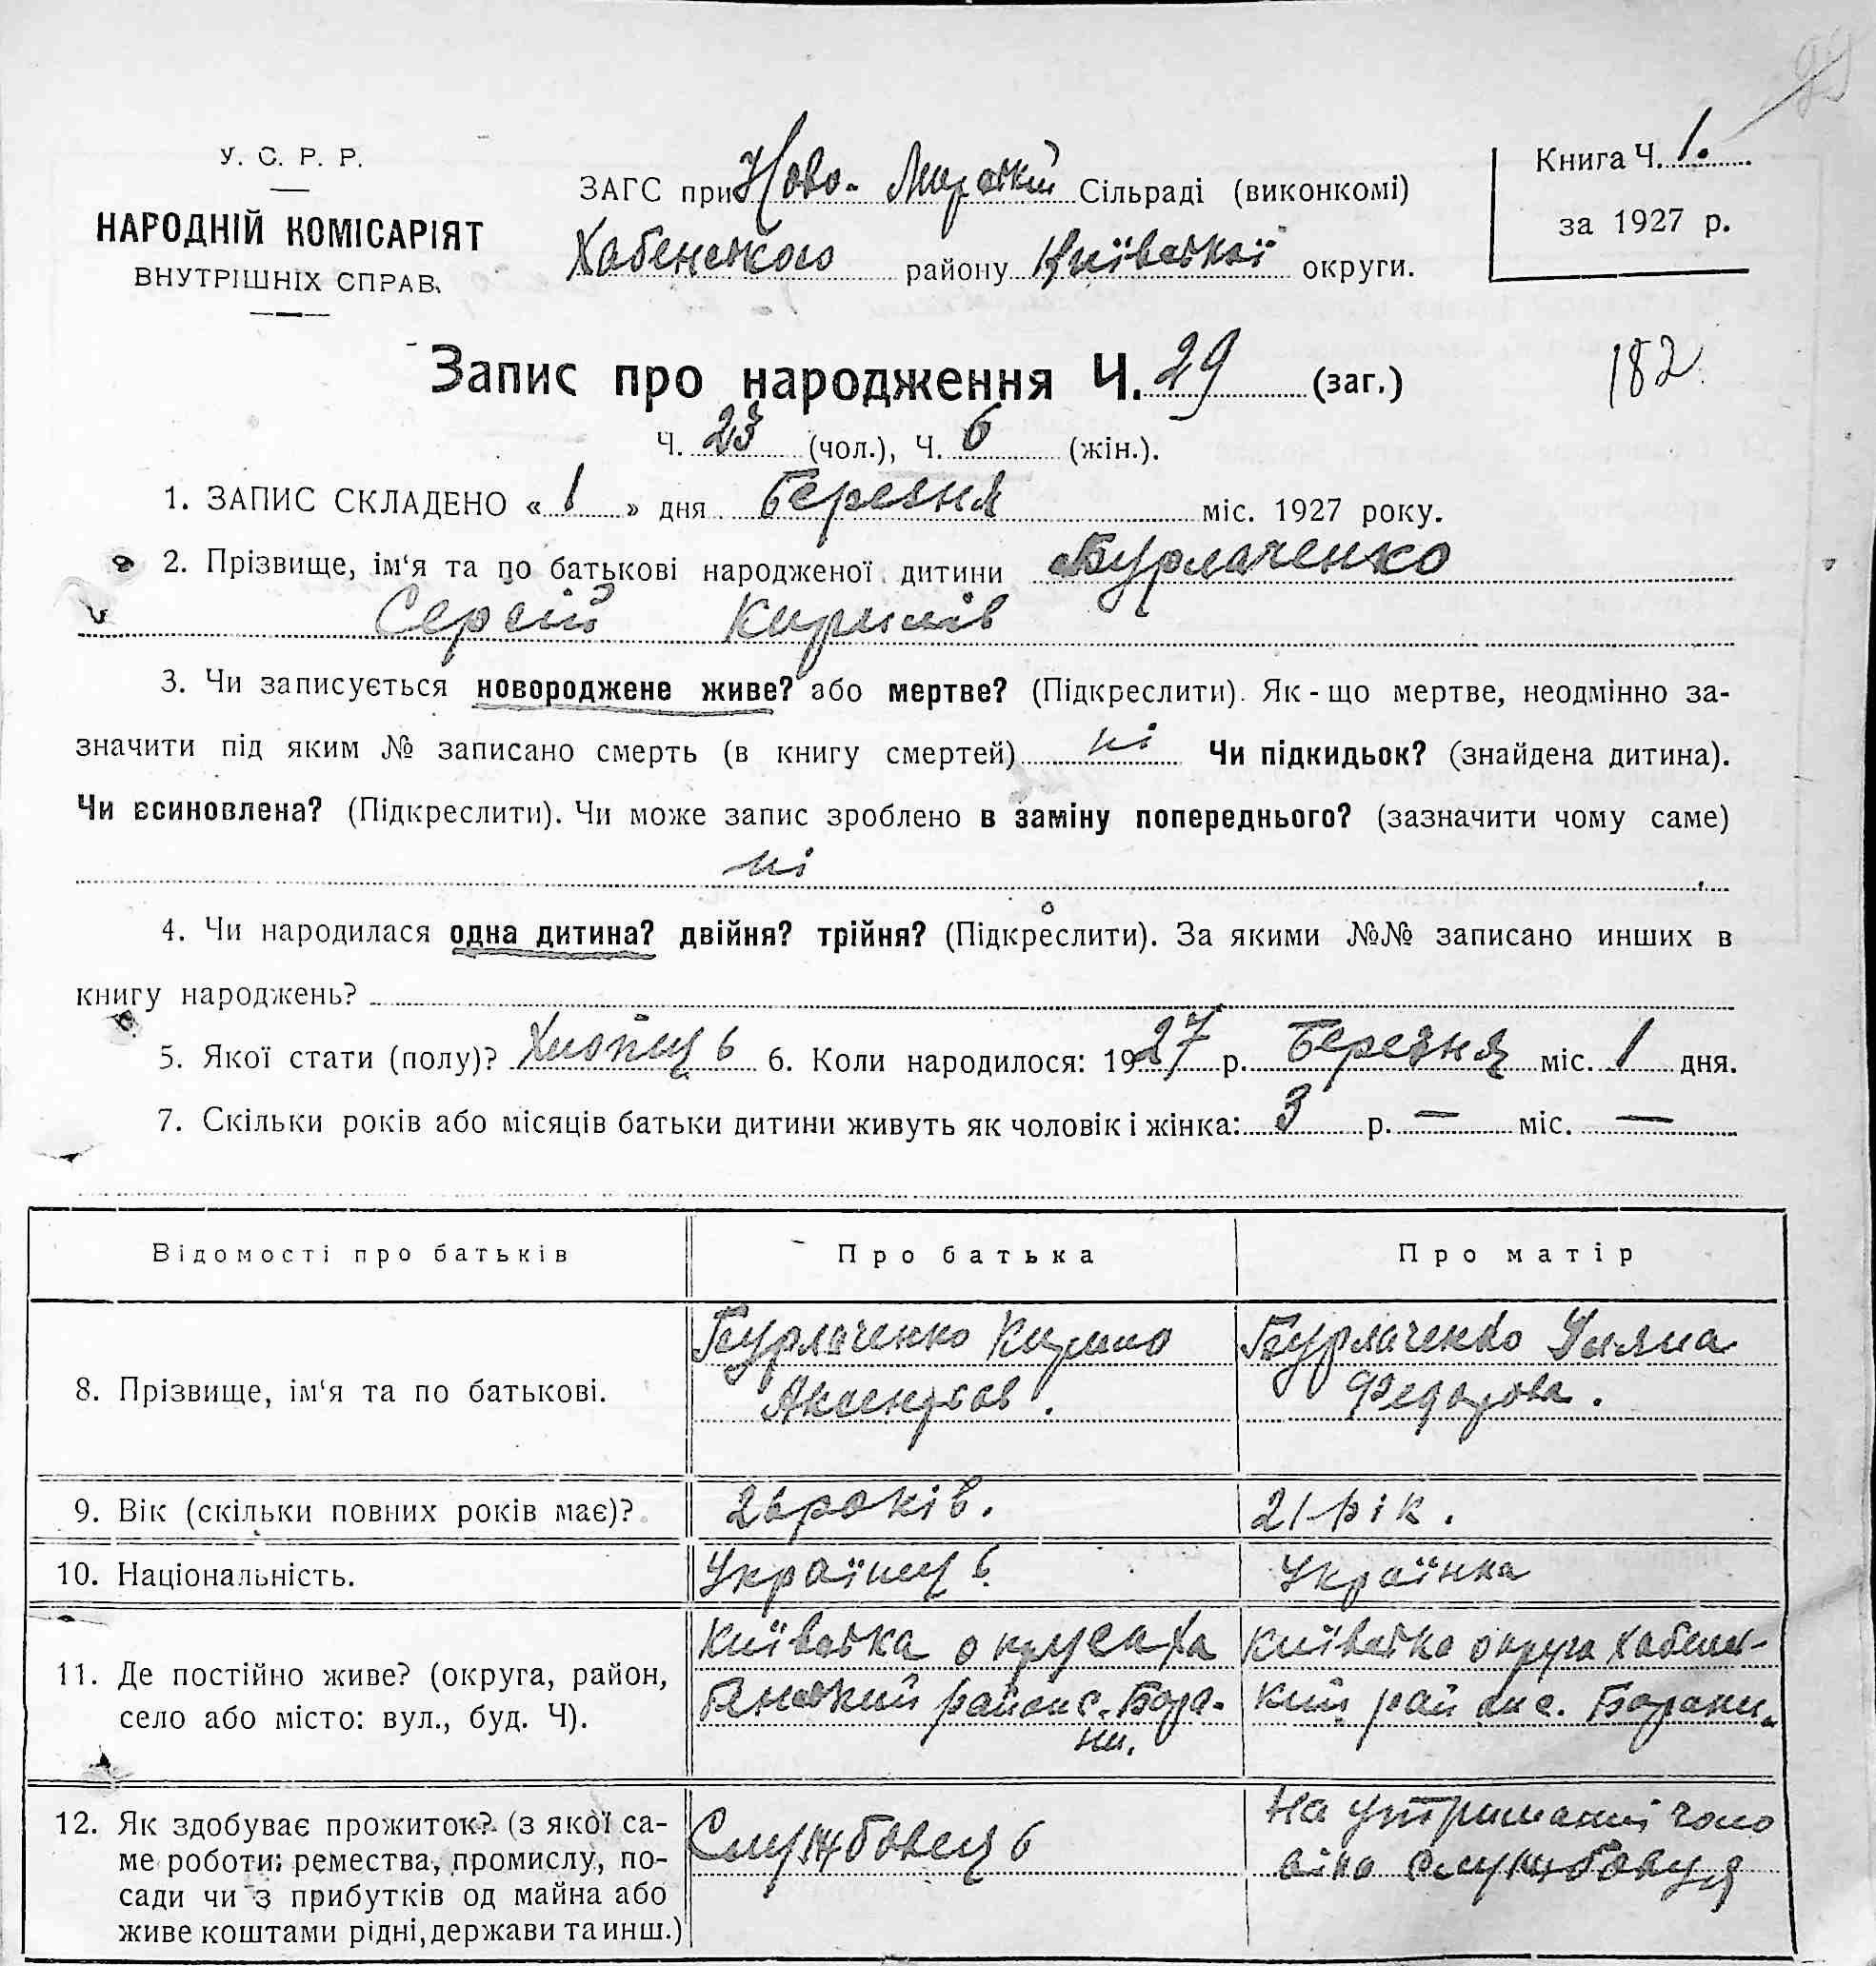 99
У. С. Р. Р.
НАРОДНІЙ КОМІСАРІЯТ
ВНУТРІШНІХ СПРАВ.
ЗАГС при Ново-Мирській Сільраді (виконкомі)
Хабенського району Київської округи.
Книга Ч. 1.
за 1927 р.
Запис про народження Ч. 29 (заг.)
182
Ч. 23 (чол.), Ч. 6 (жін.).
1. ЗАПИС СКЛАДЕНО « 1 » дня Березня міс. 1927 року.
2. Прізвище, ім‘я та по батькові народженої дитини Бурлаченко
Сергій Кирилів
3. Чи записується новороджене живе? або мертве? (Підкреслити). Як-що мертве, неодмінно за-
значити під яким № записано смерть (в книгу смертей) ні Чи підкидьок? (знайдена дитина).
Чи всиновлена? (Підкреслити). Чи може запис зроблено в заміну попереднього? (зазначити чому саме)
ні
4. Чи народилася одна дитина? двійня? трійня? (Підкреслити). За якими №№ записано инших в
книгу народжень?
5. Якої стати (полу)? Хлопець 6. Коли народилося: 1927 р. Березня міс. 1 дня.
7. Скільки років або місяців батьки дитини живуть як чоловік і жінка: 3 р. — міс. —
Відомості про батьків
Про батька
Про матір
8. Прізвище, ім‘я та по батькові.
Бурлаченко Кирило
Аксентьєв.
Бурлаченко Уляна
Федорова.
9. Вік (скільки повних років має)?
26 років.
21 рік.
10. Національність.
Українець
Українка
11. Де постійно живе? (округа, район,
село або місто: вул., буд. Ч).
Київська округа Ха
бенський район с. Бора-
ни.
Київська округа Хабенс-
кий район с. Борани.
12. Як здобуває прожиток? (з якої са-
ме роботи: ремества, промислу, по-
сади чи з прибутків од майна або
живе коштами рідні, держави та инш.)
Службовець
На утриманні чоло
віка службовця